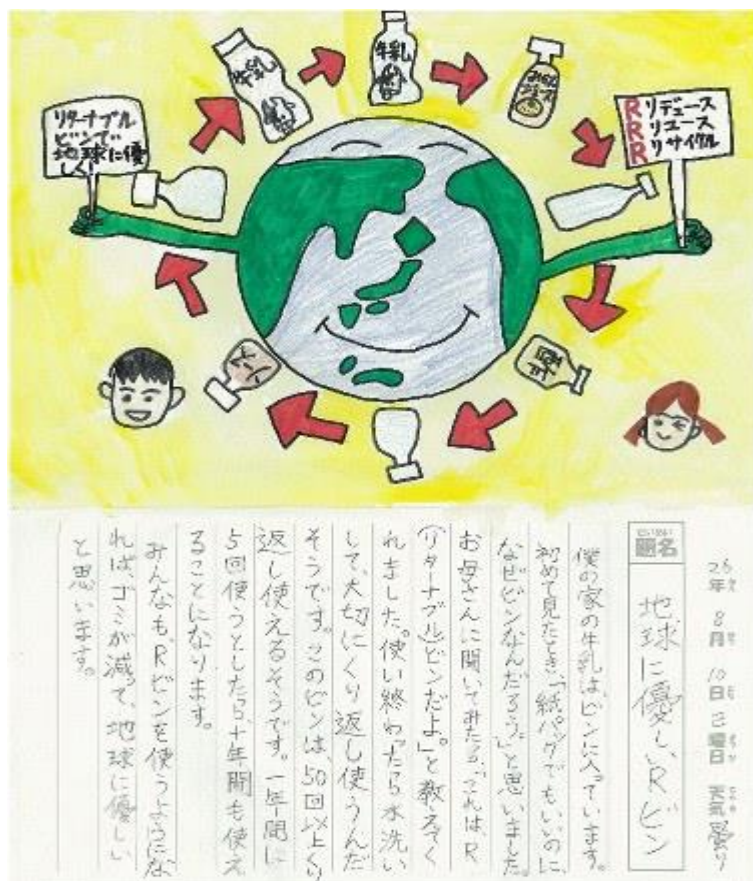 牛乳
牛乳
みかんジュース
リターナブル
ビンで
地球に優
しく!
R リデュース
R リユース
R リサイクル
26年 8月 10日 日曜日 天気 曇り
題名
地球に優しいRビン
僕の家の牛乳は、ビンに入っています。
初めて見たとき、「紙パックでもいいのに、
なぜビンなんだろう。」と思いました。
お母さんに聞いてみたら、「これはR
(リターナブル)ビンだよ。」と教えてく
れました。使い終わったら水洗い
して、大切にくり返し使うんだ
そうです。このビンは、50回以上くり
返し使えるそうです。一年間に
5回使うとしたら、十年間も使え
ることになります。
みんなも、Rビンを使うようにな
れば、ゴミが減って、地球に優しい
と思います。